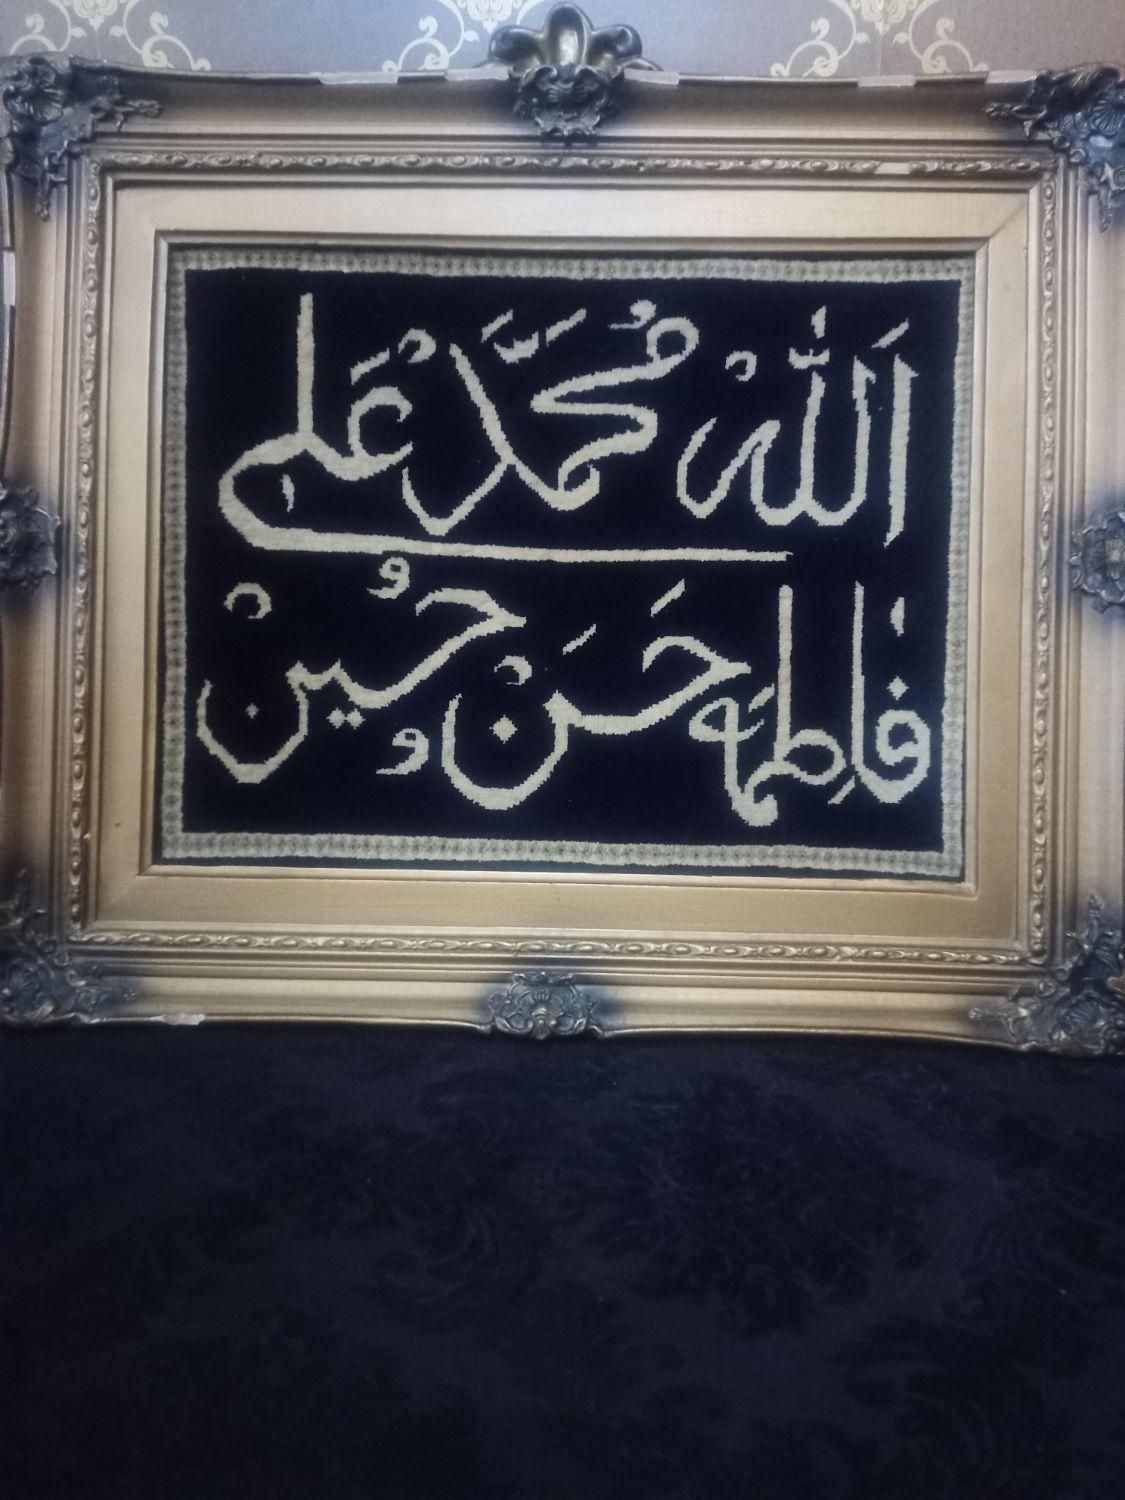 اَللّٰهُ مُحَمَّدْ عَلی
فاطِمَه حَسَنْ حُسِیْنْ